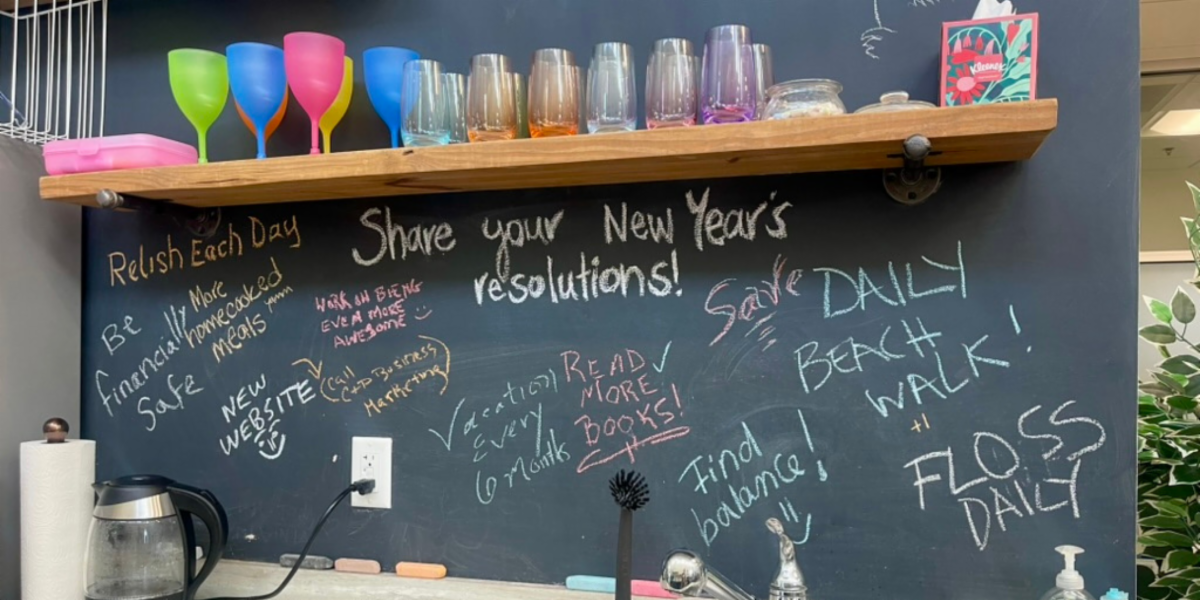 Kleenex
Share your New Year's
resolutions!
Relish Each Day
Be
financially
Safe
More
homecooked
meals yum
WORK ON BEING
EVEN MORE
AWESOME
NEW
WEBSITE
(Call
C+D Business
Marketing)
Vacation
Every
6 months
READ
MORE
BOOKS!
Save
DAILY
BEACH
WALK!
Find
balance!
+1
FLOSS
DAILY